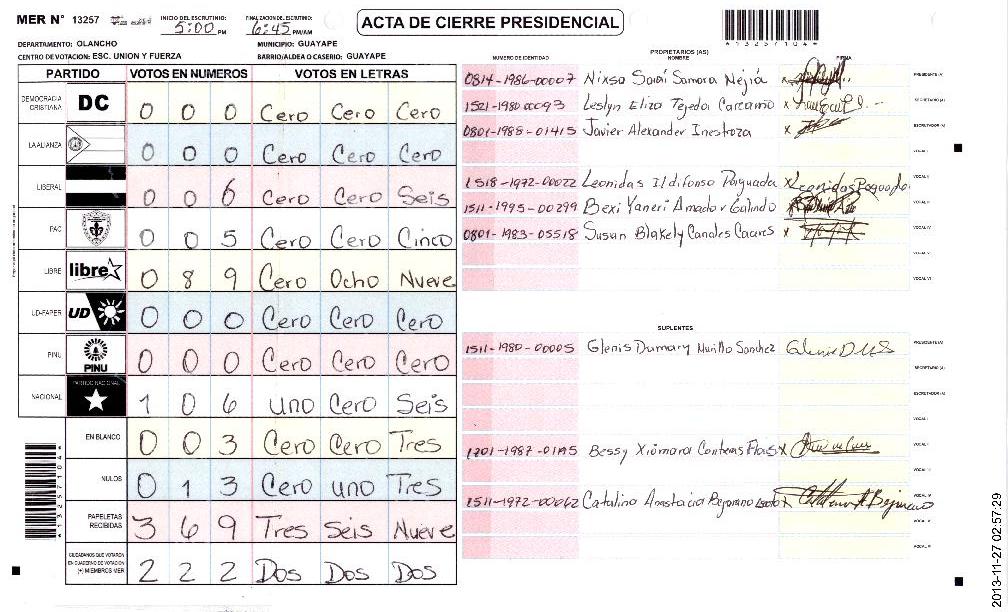 MER N° 13257
INICIO DEL ESCRUTINIO: 5:00 PM
FINALIZACION DEL ESCRUTINIO: 6:45 PM/AM
ACTA DE CIERRE PRESIDENCIAL
*13257104*
DEPARTAMENTO: OLANCHO
MUNICIPIO: GUAYAPE
CENTRO DE VOTACION: ESC. UNION Y FUERZA
BARRIO/ALDEA O CASERIO: GUAYAPE
PARTIDO VOTOS EN NUMEROS VOTOS EN LETRAS
DEMOCRACIA CRISTIANA DC 0 0 0 Cero Cero Cero
LA ALIANZA 0 0 0 Cero Cero Cero
LIBERAL 0 0 6 Cero Cero Seis
PAC 0 0 5 Cero Cero Cinco
LIBRE libre 0 8 9 Cero Ocho Nueve
UD-FAPER UD 0 0 0 Cero Cero Cero
PINU PINU 0 0 0 Cero Cero Cero
NACIONAL PARTIDO NACIONAL 1 0 6 uno Cero Seis
EN BLANCO 0 0 3 Cero Cero Tres
NULOS 0 1 3 Cero uno Tres
PAPELETAS RECIBIDAS 3 6 9 Tres Seis Nueve
CIUDADANOS QUE VOTARON EN CUADERNO DE VOTACION (+) MIEMBROS MER 2 2 2 Dos Dos Dos
*13257104*
PROPIETARIOS (AS)
NUMERO DE IDENTIDAD NOMBRE FIRMA
0814-1986-00007 Nixsa Sarai Samora Nejia PRESIDENTE (A)
1521-1980-00093 Leslyn Eliza Tejeda Carcamo SECRETARIO (A)
0801-1988-01415 Javier Alexander Inestroza ESCRUTADOR (A)
VOCAL I
1518-1972-00022 Leonidas Ildifonso Paguada VOCAL II
1511-1995-00299 Bexi Yaneri Amador Galindo VOCAL III
0801-1983-05518 Susan Blakely Canales Caceres VOCAL IV
VOCAL V
VOCAL VI
SUPLENTES
1511-1980-00005 Glenis Dumary Murillo Sanchez PRESIDENTE (A)
SECRETARIO (A)
ESCRUTADOR (A)
VOCAL I
Bessy Xiomara Contreras VOCAL II
VOCAL III
1511-1972-00062 Catalina Anastacia Bejarano VOCAL IV
VOCAL V
VOCAL VI
2013-11-27 02:57:29